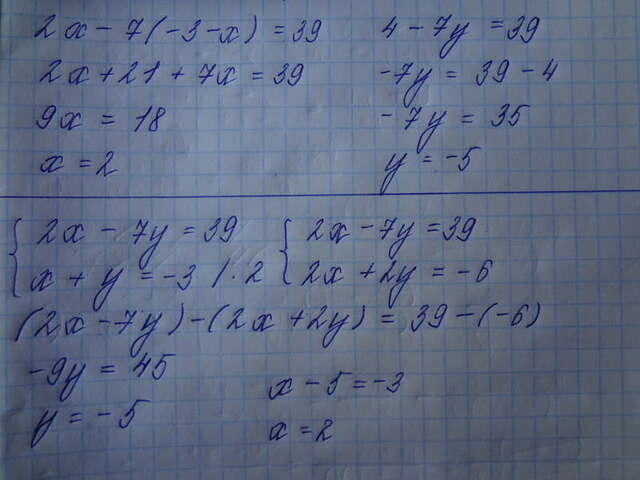 2x - 7(-3-x) = 39
2x + 21 + 7x = 39
9x = 18
x = 2
4 - 7y = 39
-7y = 39 - 4
-7y = 35
y = -5
{ 2x - 7y = 39
x + y = -3 | · 2
{ 2x - 7y = 39
2x + 2y = -6
(2x - 7y) - (2x + 2y) = 39 - (-6)
-9y = 45
y = -5
x - 5 = -3
x = 2